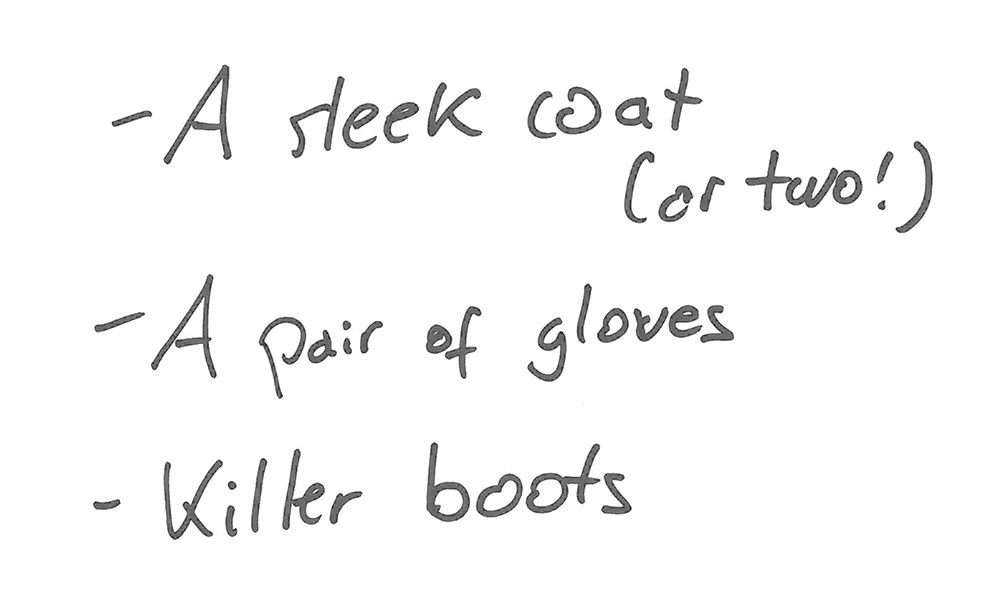 - A sleek coat
(or two!)
- A pair of gloves
- Killer boots